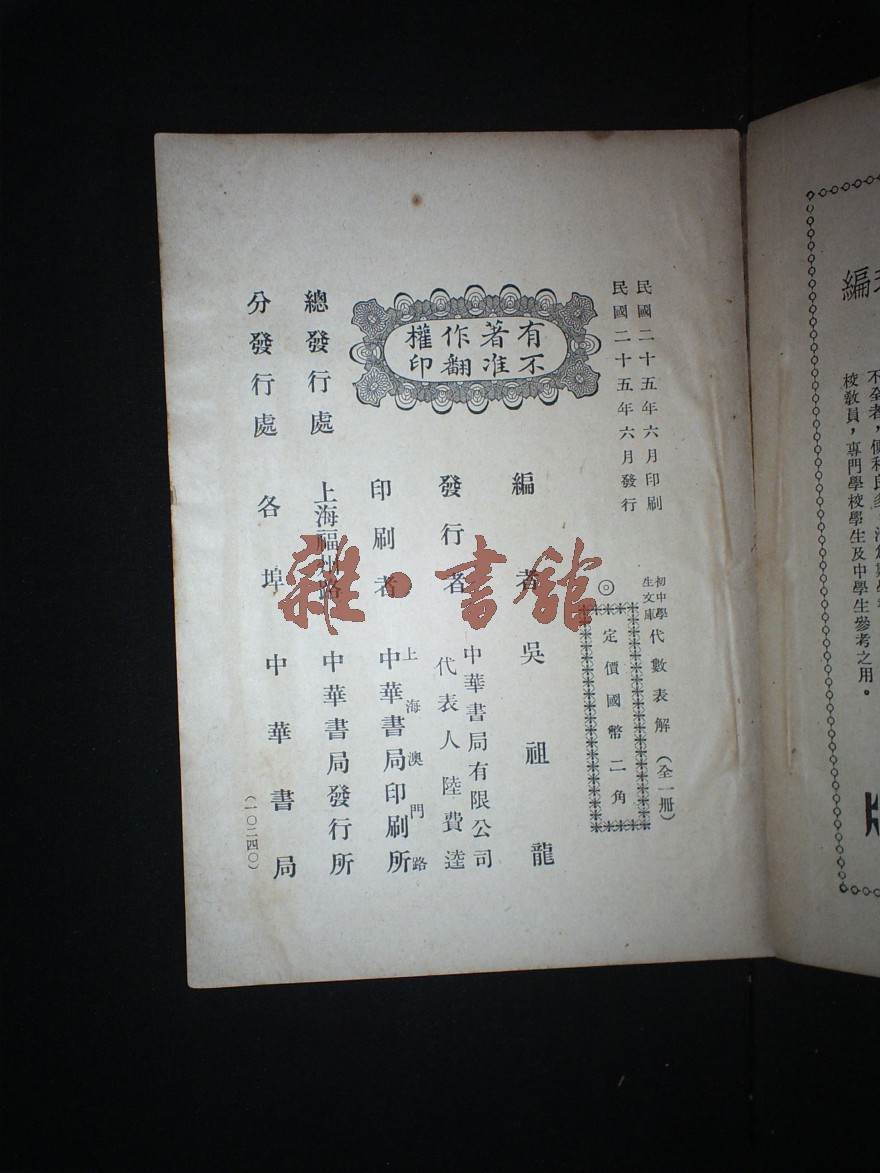 民國二十五年六月印刷
民國二十五年六月發行
初中學
生文庫
代數表解(全一册)
◎
定價國幣二角
有著作權
不准翻印
編者 吳祖龍
發行者 中華書局有限公司
代表人陸費逵
印刷者 上海澳門路
中華書局印刷所
總發行處 上海福州路 中華書局發行所
分發行處 各埠中華書局
(一〇二四〇)
雜·書館
編
不全者,便利良多
校教員,專門學校學生及中學生參考之用。